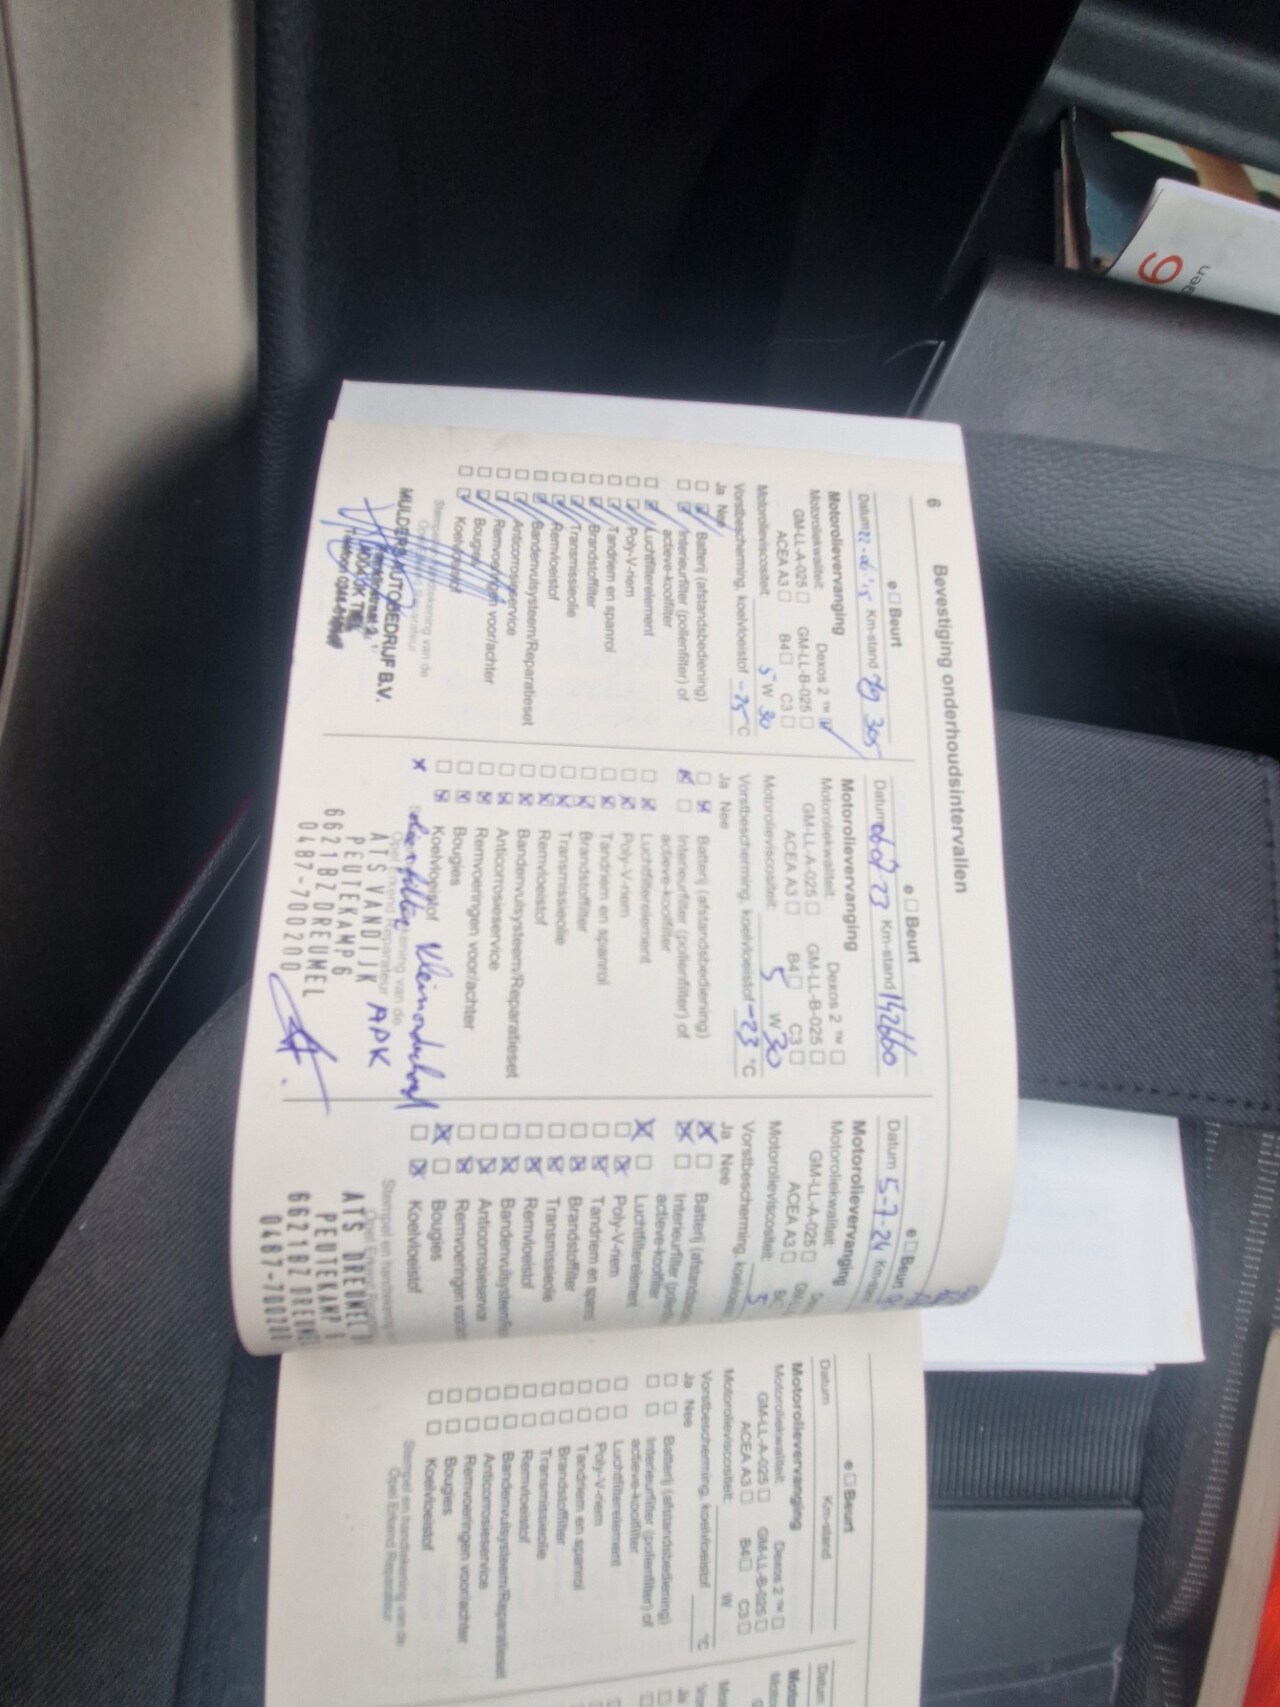 6
Bevestiging onderhoudsintervallen
e □ Beurt
Datum 22-06-'15 Km-stand 79 305
Motorolievervanging
Motoroliekwaliteit: Dexos 2 ™
GM-LL-A-025 GM-LL-B-025
ACEA A3 B4 C3
Motorolieviscositeit: 5 W 30
Vorstbescherming, koelvloeistof -25 °C
Ja Nee
Batterij (afstandsbediening)
Interieurfilter (pollenfilter) of
actieve-koolfilter
Luchtfilterelement
Poly-V-riem
Tandriem en spanrol
Brandstoffilter
Transmissieolie
Remvloeistof
Bandenvulsysteem/Reparatieset
Anticorrosieservice
Remvoeringen voor/achter
Bougies
Koelvloeistof
MULDERS AUTOBEDRIJF B.V.
e □ Beurt
Km-stand 142660
Motorolievervanging
Motoroliekwaliteit: Dexos 2 ™
GM-LL-A-025 GM-LL-B-025
ACEA A3 B4 C3
Motorolieviscositeit: 5 W 30
Vorstbescherming, koelvloeistof -23 °C
Ja Nee
Batterij (afstandsbediening)
Interieurfilter (pollenfilter) of
actieve-koolfilter
Luchtfilterelement
Poly-V-riem
Tandriem en spanrol
Brandstoffilter
Transmissieolie
Remvloeistof
Bandenvulsysteem/Reparatieset
Anticorrosieservice
Remvoeringen voor/achter
Bougies
Koelvloeistof
APK
ATS VAN DIJK
PEUTEKAMP 6
6621BZ DREUMEL
0487-700200
e □ Beurt
Datum 5-7-24
Motorolievervanging
Motoroliekwaliteit:
GM-LL-A-025
ACEA A3
Motorolieviscositeit: 5
Vorstbescherming,
Ja Nee
Batterij
Interieurfilter
actieve-koolfilter
Luchtfilterelement
Poly-V-riem
Tandriem en
Brandstoffilter
Transmissieolie
Remvloeistof
Anticorrosieservice
Remvoeringen
Bougies
Koelvloeistof
Stempel en
ATS DREUMEL
PEUTEKAMP 6
6621BZ DREUMEL
0487-700200
e □ Beurt
Datum Km-stand
Motorolievervanging
Motoroliekwaliteit: Dexos 2 ™
GM-LL-A-025 GM-LL-B-025
ACEA A3 B4 C3
Motorolieviscositeit: W
Vorstbescherming, koelvloeistof °C
Ja Nee
Batterij (afstandsbediening)
Interieurfilter (pollenfilter) of
actieve-koolfilter
Luchtfilterelement
Poly-V-riem
Tandriem en spanrol
Brandstoffilter
Transmissieolie
Remvloeistof
Bandenvulsysteem/Reparatieset
Anticorrosieservice
Remvoeringen voor/achter
Bougies
Koelvloeistof
Stempel en handtekening van de
Opel Erkend Reparateur
Datum